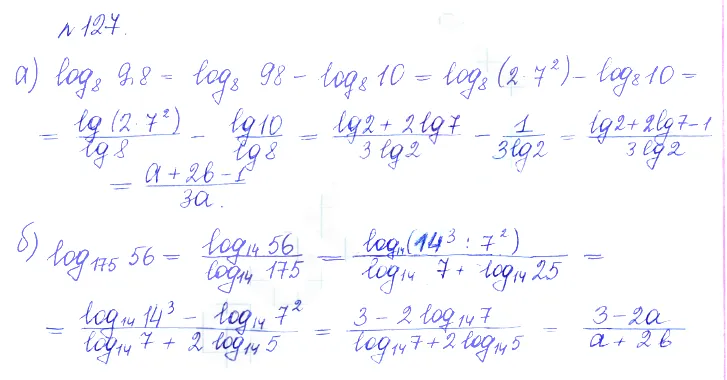 №127.
а) log₈ 9,8 = log₈ 98 − log₈ 10 = log₈ (2·7²) − log₈ 10 =
= lg(2·7²)/lg 8 − lg10/lg8 = (lg2 + 2lg7)/(3lg2) − 1/(3lg2) = (lg2+2lg7−1)/(3lg2)
= (a+2b−1)/(3a).
б) log₁₇₅ 56 = log₁₄ 56/log₁₄ 175 = log₁₄(14³ : 7²)/(log₁₄ 7 + log₁₄ 25) =
= (log₁₄ 14³ − log₁₄ 7²)/(log₁₄ 7 + 2 log₁₄ 5) = (3 − 2 log₁₄ 7)/(log₁₄ 7 + 2 log₁₄ 5) = (3−2a)/(a+2b)